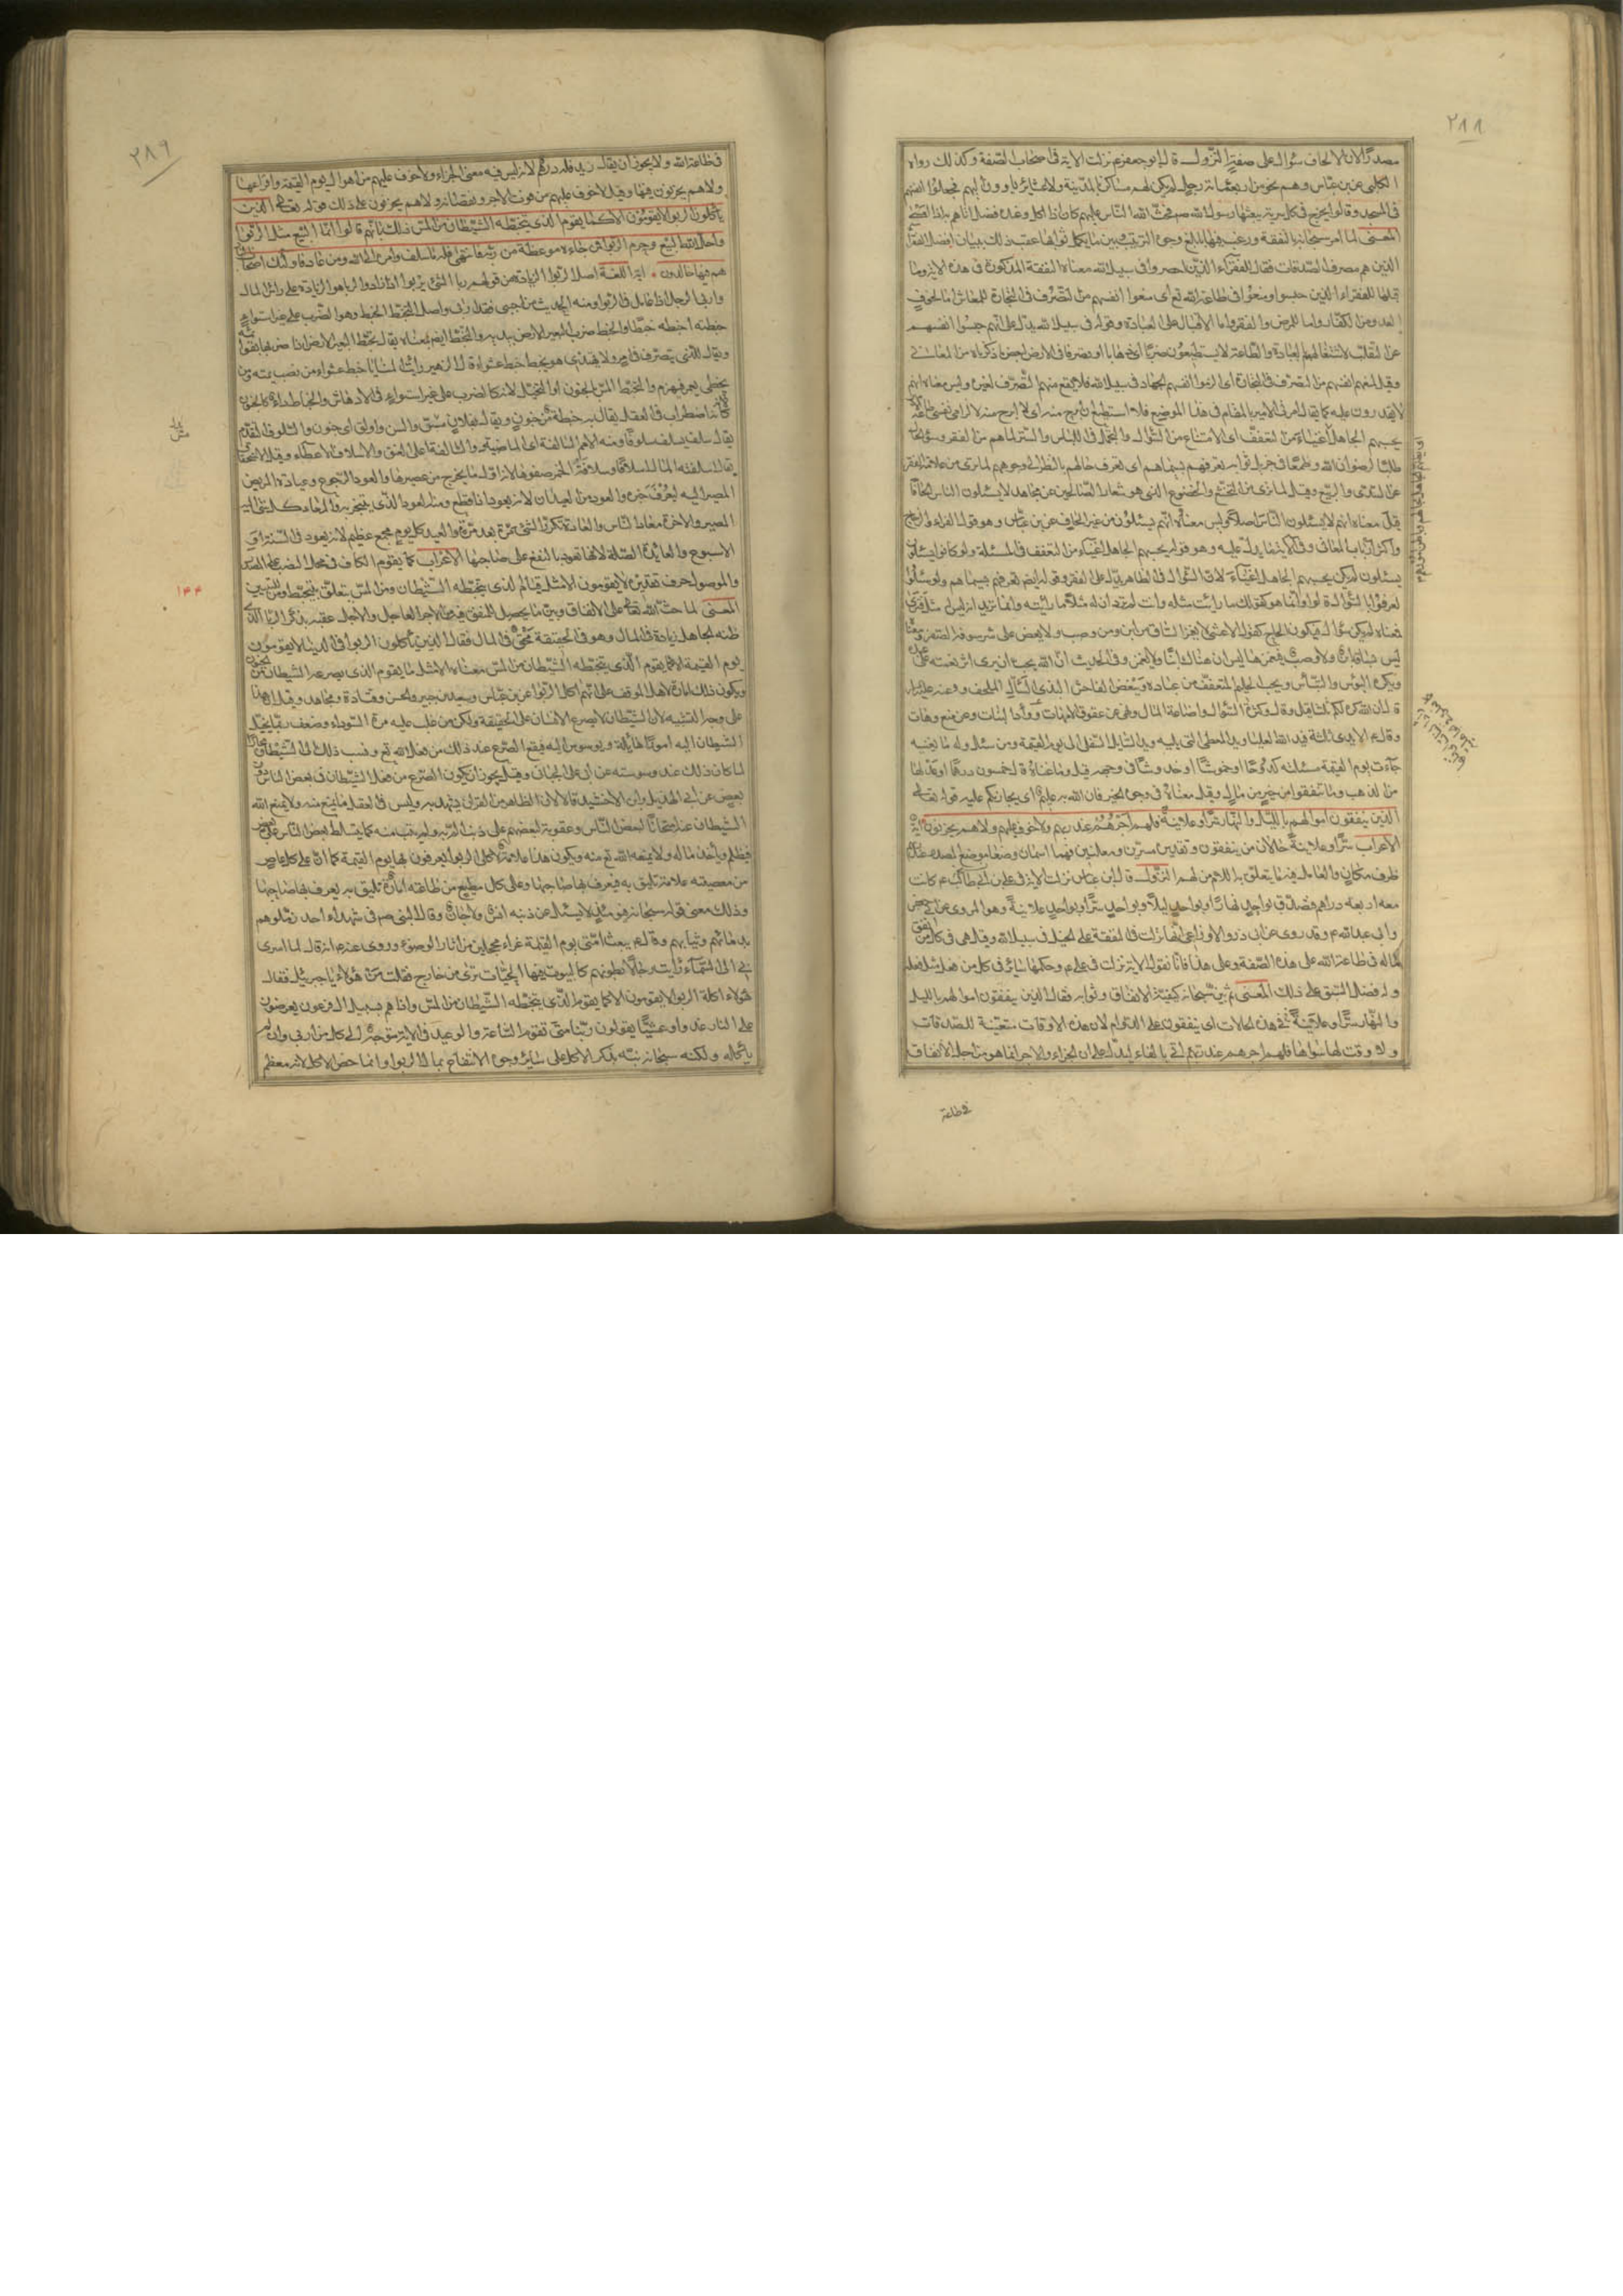 ٢٨٨
مصدرًا لان الالحاف سؤال على صفة النزول قال ابو جعفر ع نزلت الاية في اصحاب الصفة وكذلك رواه
الكلبي عن ابن عباس وهم نحو من اربعمائة رجل لم يكن لهم مساكن بالمدينة ولا عشائر ياوون اليهم فجعلوا انفسهم
في المسجد وقالوا نخرج في كل سرية يبعثها رسول الله صم فحث الله الناس عليهم كان اذا اكل وعنده فضل اتاهم به اذا
المعنى لما امر سبحانه بالنفقة ورغب فيها بابلغ وجوه الترغيب وبين ما يكمل ثوابها عقب ذلك ببيان افضل الفقراء
الذين هم مصرف الصدقات فقال للفقراء الذين احصروا في سبيل الله معناه النفقة المذكورة في هذه الاية وما
قبلها للفقراء الذين حبسوا ومنعوا في طاعة الله تع اى منعوا انفسهم من التصرف في التجارة للمعاش اما لخوف
العدو من الكفار واما للمرض والفقر واما للاقبال على العبادة وقوله في سبيل الله يدل على انهم حبسوا انفسهم
عن التقلب لاشتغالهم بالعبادة والطاعة لا يستطيعون ضربًا اى ذهابا او تصرفا في الارض لبعض ما ذكرناه من المعاني
وقيل لمنعهم انفسهم من التصرف في التجارة اى الزموا انفسهم الجهاد في سبيل الله فلا يقع منهم التصرف لغيره وليس معناه انهم
لا يقدرون عليه كما يقال امرنى الامير بالمقام في هذا الموضع فلا استطيع ان ابرح منه اى لا ابرح منه لالزامى نفسى طاعته
يحسبهم الجاهل اغنياء من التعفف اى الامتناع من السؤال والتجمل في اللباس والستر لما هم من الفقر وسوء الحال
طلبًا لرضوان الله وطمعًا في جزيل ثوابه تعرفهم بسيماهم اى تعرف حالهم بالنظر الى وجوههم لما يرى من علامة الفقر
عن السدى والربيع وقيل لما يرى من التخشع والخضوع الذى هو شعار الصالحين عن مجاهد لا يسئلون الناس الحافًا
قيل معناه انهم لا يسئلون الناس اصلا وليس معناه انهم يسئلون من غير الحاف عن ابن عباس وهو قول الفراء والزجاج
واكثر ارباب المعاني وفي الاية ما يدل عليه وهو قوله يحسبهم الجاهل اغنياء من التعفف في المسئلة ولو كانوا يسئلون
يسئلون لم يكن يحسبهم الجاهل اغنياء لان السؤال في الظاهر يدل على الفقر وقوله ايضا تعرفهم بسيماهم ولو سئلوا
لعرفوا بالسؤال قالوا وانما هو كقولك ما رايت مثله وانت لم ترد ان له مثلا ما رايته وانما تريد انه ليس مثله فترى
فمعناه لم يكن سؤال فيكون الحاح كقول الاعشى لا يغمز الساق من اين ومن وصب ولا يعض على شرسوفه الصفر
ليس بساقه اين ولا وصب فيغمزها ليس ان هناك اينًا ولا يغمز وفي الحديث ان الله يحب ان يرى اثر نعمته على عبده
ويكره البؤس والتباؤس ويحب الحليم المتعفف من عباده ويبغض الفاحش البذى السائل الملحف وعنه عليه السلام
قال ان الله كره لكم ثلثا قيل وقال وكثرة السؤال واضاعة المال ونهى عن عقوق الامهات ووأد البنات وعن منع وهات
وقال ع الايدى ثلثة فيد الله العليا ويد المعطى التى يليه ويد السائل السفلى الى يوم القيمة ومن سئل وله ما يغنيه
جاءت يوم القيمة مسئلته كدوحًا او خموشًا او خدوشًا في وجهه قيل وما غناه قال خمسون درهما او عدلها
من الذهب وما تنفقوا من خير من مال وقيل معناه في وجوه الخير فان الله به عليم اى يجازيكم عليه قوله تعالى
الذين ينفقون اموالهم بالليل والنهار سرًّا وعلانيةً فلهم اجرهم عند ربهم ولا خوف عليهم ولا هم يحزنون اية
الاعراب سرًّا وعلانيةً حالان من ينفقون وتقديره مسرين ومعلنين فهما اسمان وضعا موضع المصدر عند
ظرف مكان والعامل فيه ما يتعلق به اللام من لهم النزول قال ابن عباس نزلت الاية في على بن ابى طالب ع كانت
معه اربعه دراهم فتصدق بواحد نهارًا وبواحد ليلًا وبواحد سرًّا وبواحد علانيةً وهو المروى عن ابى جعفر
وابى عبد الله ع وقد روى عن ابى ذر والاوزاعى انها نزلت في النفقة على الخيل في سبيل الله وقيل هى في كل من انفق
ماله في طاعة الله على هذه الصفة وعلى هذا فانا نقول الاية نزلت في على ع وحكمها سائر في كل من فعل مثل فعله
وله فضل السبق على ذلك المعنى ثم بين سبحانه كيفية الانفاق وثوابه فقال الذين ينفقون اموالهم بالليل
والنهار سرًّا وعلانيةً في هذه الحالات اى ينفقون على الدوام لان هذه الاوقات متعينة للصدقات
ولا وقت لها سواها فلهم اجرهم عند ربهم اتى بالفاء ليدل على ان الجزاء والاجر انما هو من اجل الانفاق
في طاعة
٢٨٩
في طاعة الله ولا يجوز ان يقال زيد فله درهم لانه ليس فيه معنى الجزاء ولا خوف عليهم من اهوال يوم القيمة وافزاعها
ولا هم يحزنون فيها وقيل لا خوف عليهم من فوت الاجر ونقصانه ولا هم يحزنون على ذلك قوله تعالى الذين
ياكلون الربوا لا يقومون الا كما يقوم الذى يتخبطه الشيطان من المس ذلك بانهم قالوا انما البيع مثل الربوا
واحل الله البيع وحرم الربوا فمن جاءه موعظة من ربه فانتهى فله ما سلف وامره الى الله ومن عاد فاولئك اصحاب النار
هم فيها خالدون اية اللغة اصل الربوا الزيادة من قولهم ربا الشئ يربوا اذا زاد والربا هو الزيادة على راس المال
واربى الرجل اذا عامل في الربوا ومنه الحديث من اجبى فقد اربى واصل التخبط الخبط وهو الضرب على غير استواء
خبطته اخبطه خبطا والخبط ضرب البعير الارض بيديه والتخبط ايضا بمعناه يقال تخبط البعير الارض اذا ضربها بقوائمه
ويقال للذى يتصرف في امر ولا يهتدى هو يخبط خبط عشواء قال زهير رايت المنايا خبط عشواء من تصب تمته ومن
تخطى يعمر فيهرم والتخبط المس بالجنون او التخيل لانه كالضرب على غير استواء في الادهاش والخباط داء كالجنون
لانه اضطراب في العقل يقال به خبطة من جنون ويقال بفلان مس والس واولق اى جنون والسلوف التقدم
يقال سلف يسلف سلوفًا ومنه الامم السالفة اى الماضية والسالفة اعلى العنق والاسلاف الاعطاء قبل الاستحقاق
يقال اسلفته المال اسلافًا وسلافة الخمر صفوها لانه اول ما يخرج من عصيرها والعود الرجوع وعيادة المريض
المصير اليه ليعرف خبره والعود من العيدان لانه يعود اذا قطع ومنه العود الذى يتبخر به والمعاد كل شئ اليه
المصير والاخرة معاد الناس والعادة تكرر الشئ مرة بعد مرة والعيد كل يوم مجمع عظيم لانه يعود في السنة او في
الاسبوع والعائدة الصلة لانها تعود بالنفع على صاحبها الاعراب كما يقوم الكاف في محل النصب على المصدر
والموصول حرف تقديره لا يقومون الا مثل قيام الذى يتخبطه الشيطان ومن المس يتعلق بيتخبطه ومن للتبيين
المعنى لما حث الله تعالى على الانفاق وبين ما يحصل للمنفق من الاجر العاجل والاجل عقبه بذكر الربا الذى
ظنه الجاهل زيادة في المال وهو في الحقيقة محق في المال فقال الذين ياكلون الربوا في الدنيا لا يقومون
يوم القيمة الا كما يقوم الذى يتخبطه الشيطان من المس معناه الا مثل ما يقوم الذى يصرعه الشيطان من الجنون
ويكون ذلك امارة لاهل الموقف على انهم اكلة الربوا عن ابن عباس وسعيد بن جبير والحسن وقتادة ومجاهد وقيل ان هذا
على وجه التشبيه لان الشيطان لا يصرع الانسان على الحقيقة ولكن من غلب عليه مرة السوداء وضعف ربما يخيل
الشيطان اليه امورًا هائلة ويوسوس اليه فيقع الصرع عند ذلك من فعل الله تع ونسب ذلك الى الشيطان مجازا
لما كان ذلك عند وسوسته عن ابى على الجبائى وقيل يجوز ان يكون الصرع من فعل الشيطان في بعض الناس دون
بعض عن ابى الهذيل وابن الاخشيد قالا لان الظاهر من القران يشهد به وليس في العقل ما يمنع منه ولا يمنع الله
الشيطان عنه امتحانًا لبعض الناس وعقوبة لبعضهم على ذنب الم به ولم يتب منه كما يتسلط بعض الناس على بعض
فيظلم ويأخذ ماله ولا يمنعه الله تع منه ويكون هذا علامة لاكلى الربوا يعرفون بها يوم القيمة كما ان على كل عاص
من معصيته علامة تليق به فيعرف بها صاحبها وعلى كل مطيع من طاعته امارة تليق به يعرف بها صاحبها
وذلك معنى قوله سبحانه فيومئذ لا يسئل عن ذنبه انس ولا جان وقال النبى صم في شهداء احد زملوهم
بدمائهم وثيابهم وقال ع يبعث امتى يوم القيمة غراء محجلين من اثار الوضوء وروى عنه ع انه قال لما اسرى
بى الى السماء رايت رجالًا بطونهم كالبيوت فيها الحيات ترى من خارج فقلت من هؤلاء يا جبرئيل فقال
هؤلاء اكلة الربوا لا يقومون الا كما يقوم الذى يتخبطه الشيطان من المس واذا هم بسبيل ال فرعون يعرضون
على النار غدوا وعشيًّا يقولون ربنا متى تقوم الساعة والوعيد في الاية متوجه الى كل من اربى وان لم
يأكله ولكنه سبحانه نبه بذكر الاكل على سائر وجوه الانتفاع بمال الربوا وانما خص الاكل لانه معظم
١٤٤